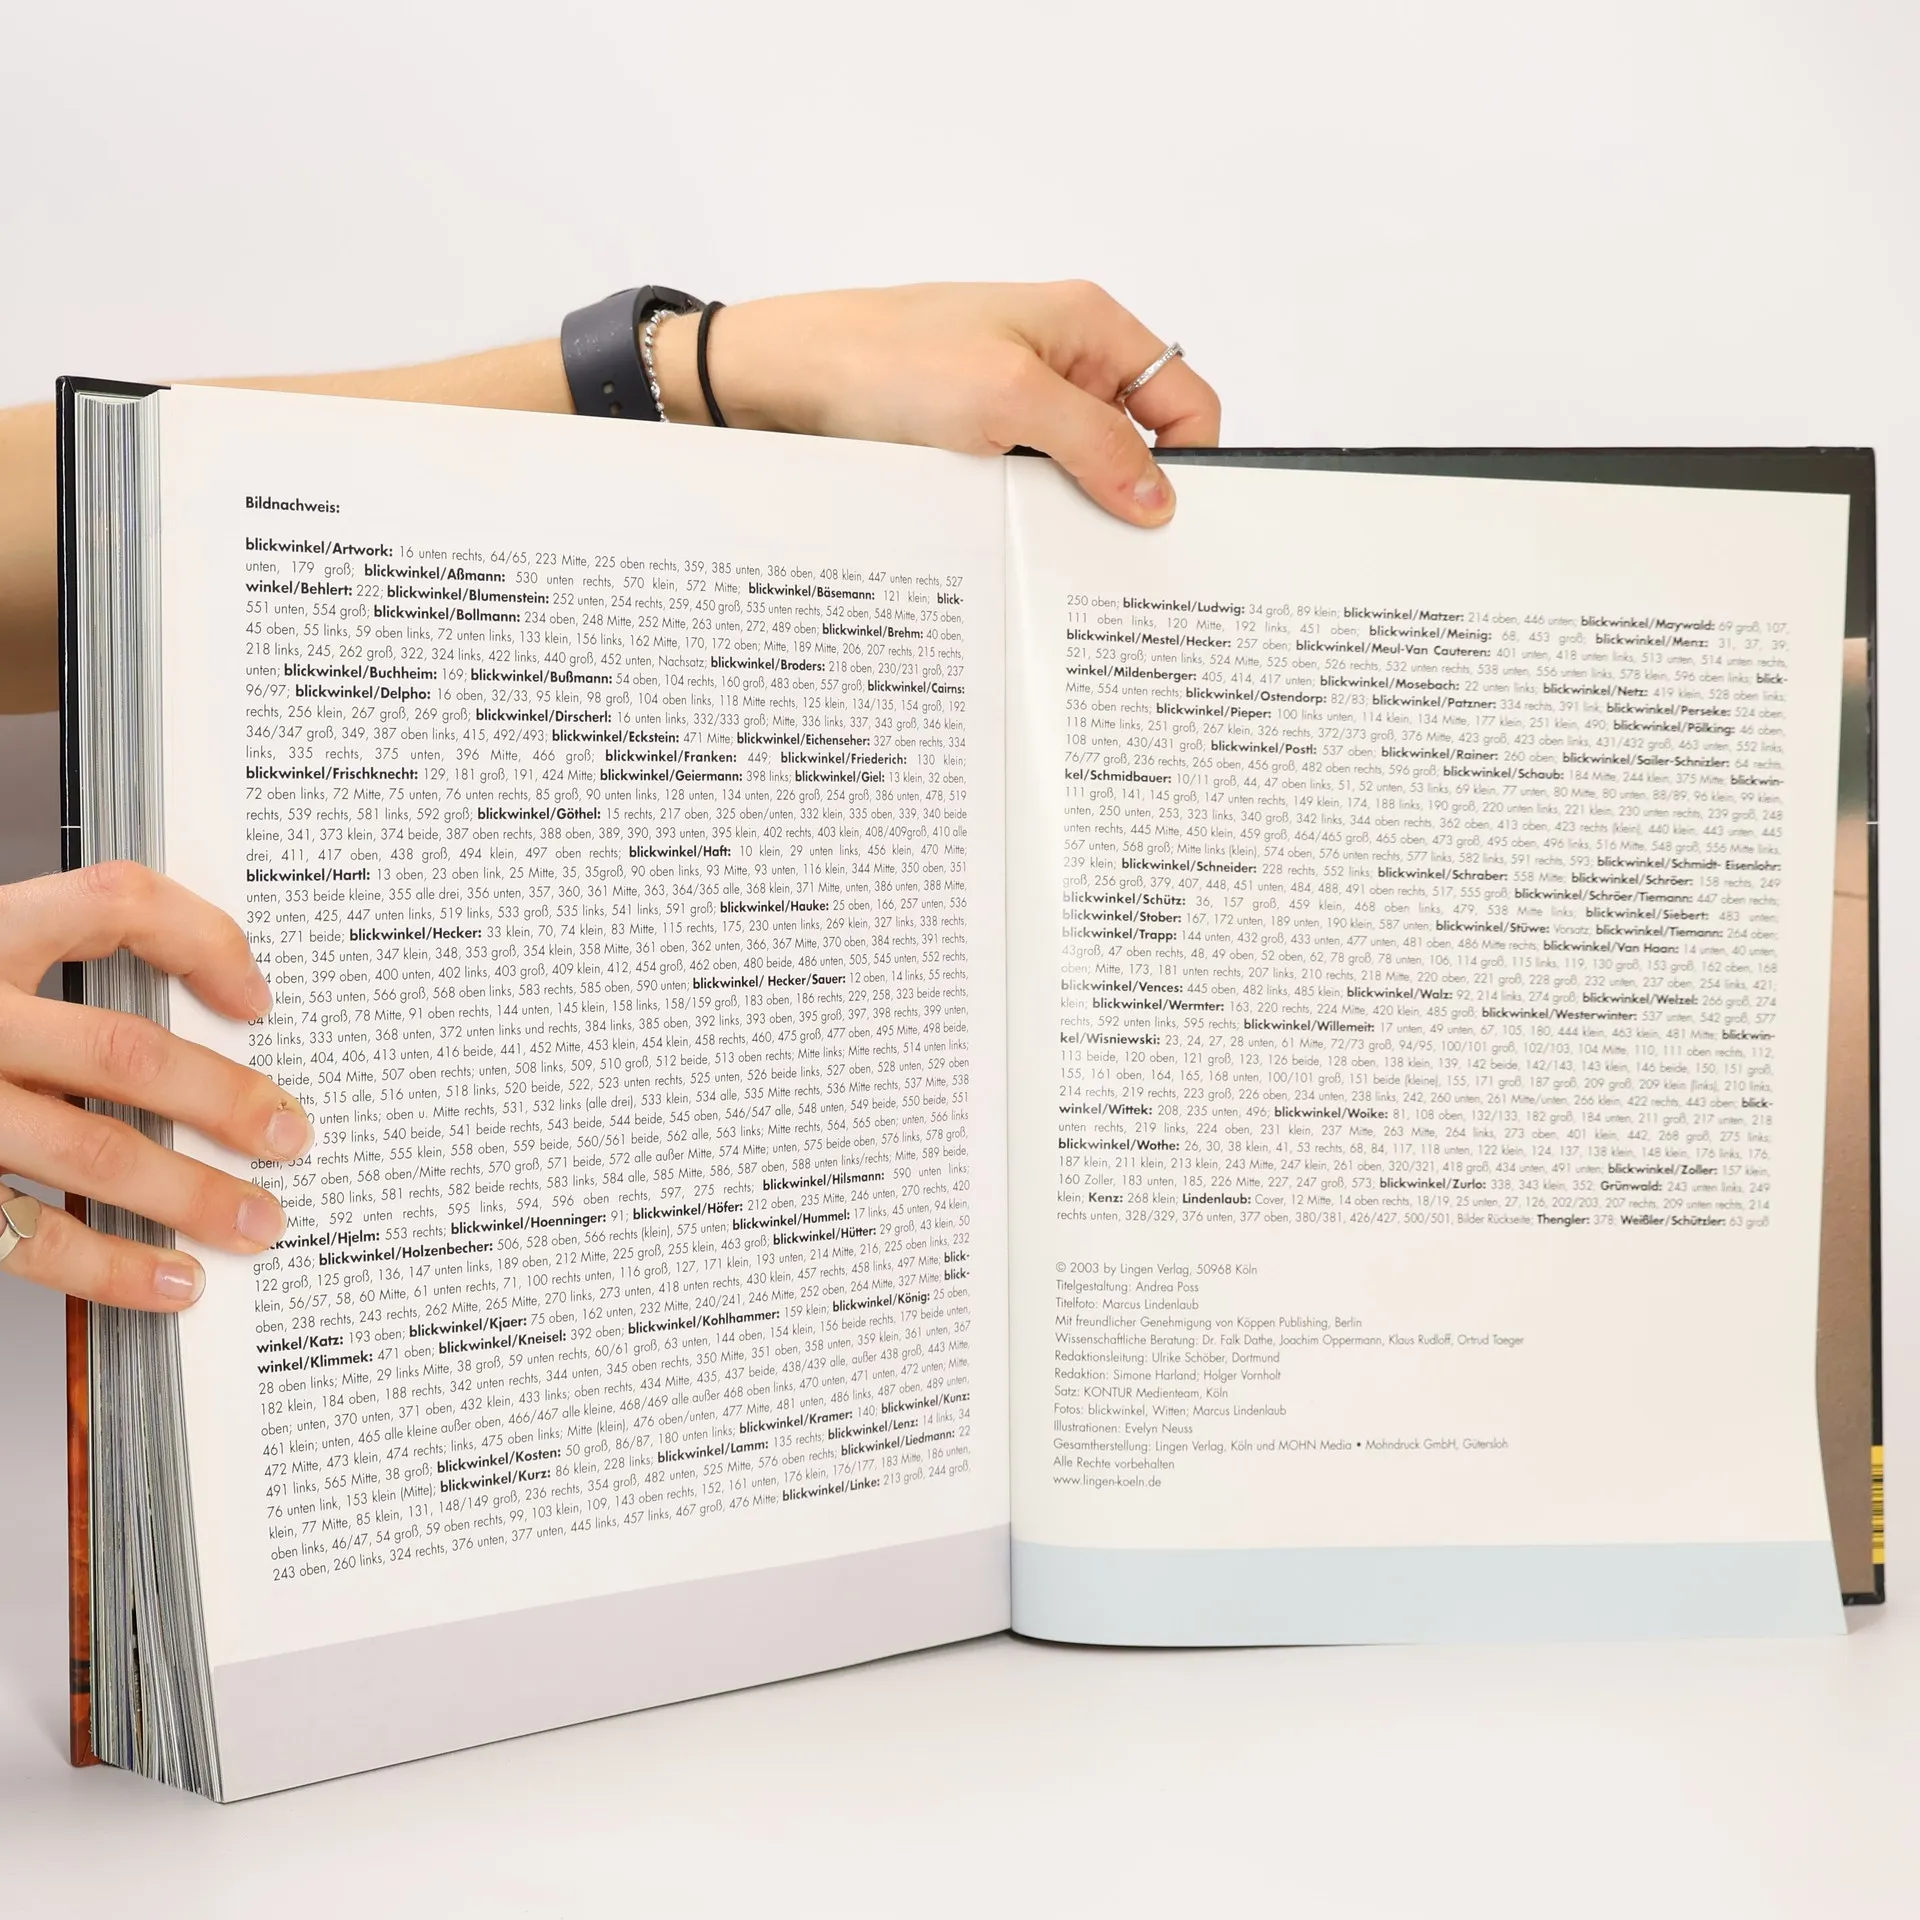 Bildnachweis:
blickwinkel/Artwork: 16 unten rechts, 64/65, 223 Mitte, 225 oben rechts, 359, 385 unten, 386 oben, 408 klein, 447 unten rechts, 527
unten, 179 groß; blickwinkel/Aßmann: 530 unten rechts, 570 klein, 572 Mitte; blickwinkel/Bäsemann: 121 klein; blick-
winkel/Behlert: 222; blickwinkel/Blumenstein: 252 unten, 254 rechts, 259, 450 groß, 535 unten rechts, 542 oben, 548 Mitte, 375 oben,
551 unten, 554 groß; blickwinkel/Bollmann: 234 oben, 248 Mitte, 252 Mitte, 263 unten, 272, 489 oben; blickwinkel/Brehm: 40 oben,
45 oben, 55 links, 59 oben links, 72 unten links, 133 klein, 156 links, 162 Mitte, 170, 172 oben; Mitte, 189 Mitte, 206, 207 rechts, 215 rechts,
218 links, 245, 262 groß, 322, 324 links, 422 links, 440 groß, 452 unten, Nachsatz; blickwinkel/Broders: 218 oben, 230/231 groß, 237
unten; blickwinkel/Buchheim: 169; blickwinkel/Bußmann: 54 oben, 104 rechts, 160 groß, 483 oben, 557 groß; blickwinkel/Cairns:
96/97; blickwinkel/Delpho: 16 oben, 32/33, 95 klein, 98 groß, 104 oben links, 118 Mitte rechts, 125 klein, 134/135, 154 groß, 192
rechts, 256 klein, 267 groß, 269 groß; blickwinkel/Dirscherl: 16 unten links, 332/333 groß; Mitte, 336 links, 337, 343 groß, 346 klein,
346/347 groß, 349, 387 oben links, 415, 492/493; blickwinkel/Eckstein: 471 Mitte; blickwinkel/Eichenseher: 327 oben rechts, 334
links, 335 rechts, 375 unten, 396 Mitte, 466 groß; blickwinkel/Franken: 449; blickwinkel/Friederich: 130 klein;
blickwinkel/Frischknecht: 129, 181 groß, 191, 424 Mitte; blickwinkel/Geiermann: 398 links; blickwinkel/Giel: 13 klein, 32 oben,
72 oben links, 72 Mitte, 75 unten, 76 unten rechts, 85 groß, 90 unten links, 128 unten, 134 unten, 226 groß, 254 groß, 386 unten, 478, 519
rechts, 539 rechts, 581 links, 592 groß; blickwinkel/Göthel: 15 rechts, 217 oben, 325 oben/unten, 332 klein, 335 oben, 339, 340 beide
kleine, 341, 373 klein, 374 beide, 387 oben rechts, 388 oben, 389, 390, 393 unten, 395 klein, 402 rechts, 403 klein, 408/409groß, 410 alle
drei, 411, 417 oben, 438 groß, 494 klein, 497 oben rechts; blickwinkel/Haft: 10 klein, 29 unten links, 456 klein, 470 Mitte;
blickwinkel/Hartl: 13 oben, 23 oben link, 25 Mitte, 35, 35groß, 90 oben links, 93 Mitte, 93 unten, 116 klein, 344 Mitte, 350 oben, 351
unten, 353 beide kleine, 355 alle drei, 356 unten, 357, 360, 361 Mitte, 363, 364/365 alle, 368 klein, 371 Mitte, unten, 386 unten, 388 Mitte,
392 unten, 425, 447 unten links, 519 links, 533 groß, 535 links, 541 links, 591 groß; blickwinkel/Hauke: 25 oben, 166, 257 unten, 536
links, 271 beide; blickwinkel/Hecker: 33 klein, 70, 74 klein, 83 Mitte, 115 rechts, 175, 230 unten links, 269 klein, 327 links, 338 rechts,
oben, 345 unten, 347 klein, 348, 353 groß, 354 klein, 358 Mitte, 361 oben, 362 unten, 366, 367 Mitte, 370 oben, 384 rechts, 391 rechts,
oben, 399 oben, 400 unten, 402 links, 403 groß, 409 klein, 412, 454 groß, 462 oben, 480 beide, 486 unten, 505, 545 unten, 552 rechts,
klein, 563 unten, 566 groß, 568 oben links, 583 rechts, 585 oben, 590 unten; blickwinkel/ Hecker/Sauer: 12 oben, 14 links, 55 rechts,
64 klein, 74 groß, 78 Mitte, 91 oben rechts, 144 unten, 145 klein, 158 links, 158/159 groß, 183 oben, 186 rechts, 229, 258, 323 beide rechts,
326 links, 333 unten, 368 unten, 372 unten links und rechts, 384 links, 385 oben, 392 links, 393 oben, 395 groß, 397, 398 rechts, 399 unten,
400 klein, 404, 406, 413 unten, 416 beide, 441, 452 Mitte, 453 klein, 454 klein, 458 rechts, 460, 475 groß, 477 oben, 495 Mitte, 498 beide,
beide, 504 Mitte, 507 oben rechts; unten, 508 links, 509, 510 groß, 512 beide, 513 oben rechts; Mitte links; Mitte rechts, 514 unten links;
515 alle, 516 unten, 518 links, 520 beide, 522, 523 unten rechts, 525 unten, 526 beide links, 527 oben, 528 unten, 529 oben
unten links; oben u. Mitte rechts, 531, 532 links (alle drei), 533 klein, 534 alle, 535 Mitte rechts, 536 Mitte rechts, 537 Mitte, 538
539 links, 540 beide, 541 beide rechts, 543 beide, 544 beide, 545 oben, 546/547 alle, 548 unten, 549 beide, 550 beide, 551
oben, 554 rechts Mitte, 555 klein, 558 oben, 559 beide, 560/561 beide, 562 alle, 563 links; Mitte rechts, 564, 565 oben; unten, 566 links
(klein), 567 oben, 568 oben/Mitte rechts, 570 groß, 571 beide, 572 alle außer Mitte, 574 Mitte; unten, 575 beide oben, 576 links, 578 groß,
beide, 580 links, 581 rechts, 582 beide rechts, 583 links, 584 alle, 585 Mitte, 586, 587 oben, 588 unten links/rechts; Mitte, 589 beide,
Mitte, 592 unten rechts, 595 links, 594, 596 oben rechts, 597, 275 rechts; blickwinkel/Hilsmann: 590 unten links;
blickwinkel/Hjelm: 553 rechts; blickwinkel/Hoenninger: 91; blickwinkel/Höfer: 212 oben, 235 Mitte, 246 unten, 270 rechts, 420
groß, 436; blickwinkel/Holzenbecher: 506, 528 oben, 566 rechts (klein), 575 unten; blickwinkel/Hummel: 17 links, 45 unten, 94 klein,
122 groß, 125 groß, 136, 147 unten links, 189 oben, 212 Mitte, 225 groß, 255 klein, 463 groß; blickwinkel/Hütter: 29 groß, 43 klein, 50
klein, 56/57, 58, 60 Mitte, 61 unten rechts, 71, 100 rechts unten, 116 groß, 127, 171 klein, 193 unten, 214 Mitte, 216, 225 oben links, 232
oben, 238 rechts, 243 rechts, 262 Mitte, 265 Mitte, 270 links, 273 unten, 418 unten rechts, 430 klein, 457 rechts, 458 links, 497 Mitte; blick-
winkel/Katz: 193 oben; blickwinkel/Kjaer: 75 oben, 162 unten, 232 Mitte, 240/241, 246 Mitte, 252 oben, 264 Mitte, 327 Mitte; blick-
winkel/Klimmek: 471 oben; blickwinkel/Kneisel: 392 oben; blickwinkel/Kohlhammer: 159 klein; blickwinkel/König: 25 oben,
28 oben links; Mitte, 29 links Mitte, 38 groß, 59 unten rechts, 60/61 groß, 63 unten, 144 oben, 154 klein, 156 beide rechts, 179 beide unten,
182 klein, 184 oben, 188 rechts, 342 unten rechts, 344 unten, 345 oben rechts, 350 Mitte, 351 oben, 358 unten, 359 klein, 361 unten, 367
oben; unten, 370 unten, 371 oben, 432 klein, 433 links; oben rechts, 434 Mitte, 435, 437 beide, 438/439 alle, außer 438 groß, 443 Mitte,
461 klein; unten, 465 alle kleine außer oben, 466/467 alle kleine, 468/469 alle außer 468 oben links, 470 unten, 471 unten, 472 unten; Mitte,
472 Mitte, 473 klein, 474 rechts; links, 475 oben links; Mitte (klein), 476 oben/unten, 477 Mitte, 481 unten, 486 links, 487 oben, 489 unten,
491 links, 565 Mitte, 38 groß; blickwinkel/Kosten: 50 groß, 86/87, 180 unten links; blickwinkel/Kramer: 140; blickwinkel/Kunz:
76 unten link, 153 klein (Mitte); blickwinkel/Kurz: 86 klein, 228 links; blickwinkel/Lamm: 135 rechts; blickwinkel/Lenz: 14 links, 34
klein, 77 Mitte, 85 klein, 131, 148/149 groß, 236 rechts, 354 groß, 482 unten, 525 Mitte, 576 oben rechts; blickwinkel/Liedmann: 22
oben links, 46/47, 54 groß, 59 oben rechts, 99, 103 klein, 109, 143 oben rechts, 152, 161 unten, 176 klein, 176/177, 183 Mitte, 186 unten,
243 oben, 260 links, 324 rechts, 376 unten, 377 unten, 445 links, 457 links, 467 groß, 476 Mitte; blickwinkel/Linke: 213 groß, 244 groß,
250 oben; blickwinkel/Ludwig: 34 groß, 89 klein; blickwinkel/Matzer: 214 oben, 446 unten; blickwinkel/Maywald: 69 groß, 107,
111 oben links, 120 Mitte, 192 links, 451 oben; blickwinkel/Meinig: 68, 453 groß; blickwinkel/Menz: 31, 37, 39,
blickwinkel/Mestel/Hecker: 257 oben; blickwinkel/Meul-Van Cauteren: 401 unten, 418 unten links, 513 unten, 514 unten rechts,
521, 523 groß; unten links, 524 Mitte, 525 oben, 526 rechts, 532 unten rechts, 538 unten, 556 unten links, 578 klein, 596 oben links; blick-
winkel/Mildenberger: 405, 414, 417 unten; blickwinkel/Mosebach: 22 unten links; blickwinkel/Netz: 419 klein, 528 oben links,
Mitte, 554 unten rechts; blickwinkel/Ostendorp: 82/83; blickwinkel/Patzner: 334 rechts, 391 link, blickwinkel/Perseke: 524 oben,
536 oben rechts; blickwinkel/Pieper: 100 links unten, 114 klein, 134 Mitte, 177 klein, 251 klein, 490; blickwinkel/Pölking: 46 oben,
118 Mitte links, 251 groß, 267 klein, 326 rechts, 372/373 groß, 376 Mitte, 423 groß, 423 oben links, 431/432 groß, 463 unten, 552 links,
108 unten, 430/431 groß; blickwinkel/Postl: 537 oben; blickwinkel/Rainer: 260 oben; blickwinkel/Sailer-Schnizler: 64 rechts,
76/77 groß, 236 rechts, 265 oben, 456 groß, 482 oben rechts, 596 groß; blickwinkel/Schaub: 184 Mitte, 244 klein, 375 Mitte; blickwin-
kel/Schmidbauer: 10/11 groß, 44, 47 oben links, 51, 52 unten, 53 links, 69 klein, 77 unten, 80 Mitte, 80 unten, 88/89, 96 klein, 99 klein,
111 groß, 141, 145 groß, 147 unten rechts, 149 klein, 174, 188 links, 190 groß, 220 unten links, 221 klein, 230 unten rechts, 239 groß, 248
unten, 250 unten, 253, 323 links, 340 groß, 342 links, 344 oben rechts, 362 oben, 413 oben, 423 rechts (klein), 440 klein, 443 unten, 445
unten rechts, 445 Mitte, 450 klein, 459 groß, 464/465 groß, 465 oben, 473 groß, 495 oben, 496 links, 516 Mitte, 548 groß, 556 Mitte links,
567 unten, 568 groß; Mitte links (klein), 574 oben, 576 unten rechts, 577 links, 582 links, 591 rechts, 593; blickwinkel/Schmidt- Eisenlohr:
239 klein; blickwinkel/Schneider: 228 rechts, 552 links; blickwinkel/Schraber: 558 Mitte; blickwinkel/Schröer: 158 rechts, 249
groß, 256 groß, 379, 407, 448, 451 unten, 484, 488, 491 oben rechts, 517, 555 groß; blickwinkel/Schröer/Tiemann: 447 oben rechts;
blickwinkel/Schütz: 36, 157 groß, 459 klein, 468 oben links, 479, 538 Mitte links; blickwinkel/Siebert: 483 unten;
blickwinkel/Stober: 167, 172 unten, 189 unten, 190 klein, 587 unten; blickwinkel/Stüwe: Vorsatz; blickwinkel/Tiemann: 264 oben;
blickwinkel/Trapp: 144 unten, 432 groß, 433 unten, 477 unten, 481 oben, 486 Mitte rechts; blickwinkel/Van Haan: 14 unten, 40 unten,
43groß, 47 oben rechts, 48, 49 oben, 52 oben, 62, 78 groß, 78 unten, 106, 114 groß, 115 links, 119, 130 groß, 153 groß, 162 oben, 168
oben; Mitte, 173, 181 unten rechts, 207 links, 210 rechts, 218 Mitte, 220 oben, 221 groß, 228 groß, 232 unten, 237 oben, 254 links, 421;
blickwinkel/Vences: 445 oben, 482 links, 485 klein; blickwinkel/Walz: 92, 214 links, 274 groß; blickwinkel/Welzel: 266 groß, 274
klein; blickwinkel/Wermter: 163, 220 rechts, 224 Mitte, 420 klein, 485 groß; blickwinkel/Westerwinter: 537 unten, 542 groß, 577
rechts, 592 unten links, 595 rechts; blickwinkel/Willemeit: 17 unten, 49 unten, 67, 105, 180, 444 klein, 463 klein, 481 Mitte; blickwin-
kel/Wisniewski: 23, 24, 27, 28 unten, 61 Mitte, 72/73 groß, 94/95, 100/101 groß, 102/103, 104 Mitte, 110, 111 oben rechts, 112,
113 beide, 120 oben, 121 groß, 123, 126 beide, 128 oben, 138 klein, 139, 142 beide, 142/143, 143 klein, 146 beide, 150, 151 groß,
155, 161 oben, 164, 165, 168 unten, 100/101 groß, 151 beide (kleine), 155, 171 groß, 187 groß, 209 groß, 209 klein (links), 210 links,
214 rechts, 219 rechts, 223 groß, 226 oben, 234 unten, 238 links, 242, 260 unten, 261 Mitte/unten, 266 klein, 422 rechts, 443 oben; blick-
winkel/Wittek: 208, 235 unten, 496; blickwinkel/Woike: 81, 108 oben, 132/133, 182 groß, 184 unten, 211 groß, 217 unten, 218
unten rechts, 219 links, 224 oben, 231 klein, 237 Mitte, 263 Mitte, 264 links, 273 oben, 401 klein, 442, 268 groß, 275 links;
blickwinkel/Wothe: 26, 30, 38 klein, 41, 53 rechts, 68, 84, 117, 118 unten, 122 klein, 124, 137, 138 klein, 148 klein, 176 links, 176,
187 klein, 211 klein, 213 klein, 243 Mitte, 247 klein, 261 oben, 320/321, 418 groß, 434 unten, 491 unten; blickwinkel/Zoller: 157 klein,
160 Zoller, 183 unten, 185, 226 Mitte, 227, 247 groß, 573; blickwinkel/Zurlo: 338, 343 klein, 352; Grünwald: 243 unten links, 249
klein; Kenz: 268 klein; Lindenlaub: Cover, 12 Mitte, 14 oben rechts, 18/19, 25 unten, 27, 126, 202/203, 207 rechts, 209 unten rechts, 214
rechts unten, 328/329, 376 unten, 377 oben, 380/381, 426/427, 500/501, Bilder Rückseite; Thengler: 378; Weißler/Schützler: 63 groß
© 2003 by Lingen Verlag, 50968 Köln
Titelgestaltung: Andrea Poss
Titelfoto: Marcus Lindenlaub
Mit freundlicher Genehmigung von Köppen Publishing, Berlin
Wissenschaftliche Beratung: Dr. Falk Dathe, Joachim Oppermann, Klaus Rudloff, Ortrud Taeger
Redaktionsleitung: Ulrike Schöber, Dortmund
Redaktion: Simone Harland; Holger Vornholt
Satz: KONTUR Medienteam, Köln
Fotos: blickwinkel, Witten; Marcus Lindenlaub
Illustrationen: Evelyn Neuss
Gesamtherstellung: Lingen Verlag, Köln und MOHN Media • Mohndruck GmbH, Gütersloh
Alle Rechte vorbehalten
www.lingen-koeln.de